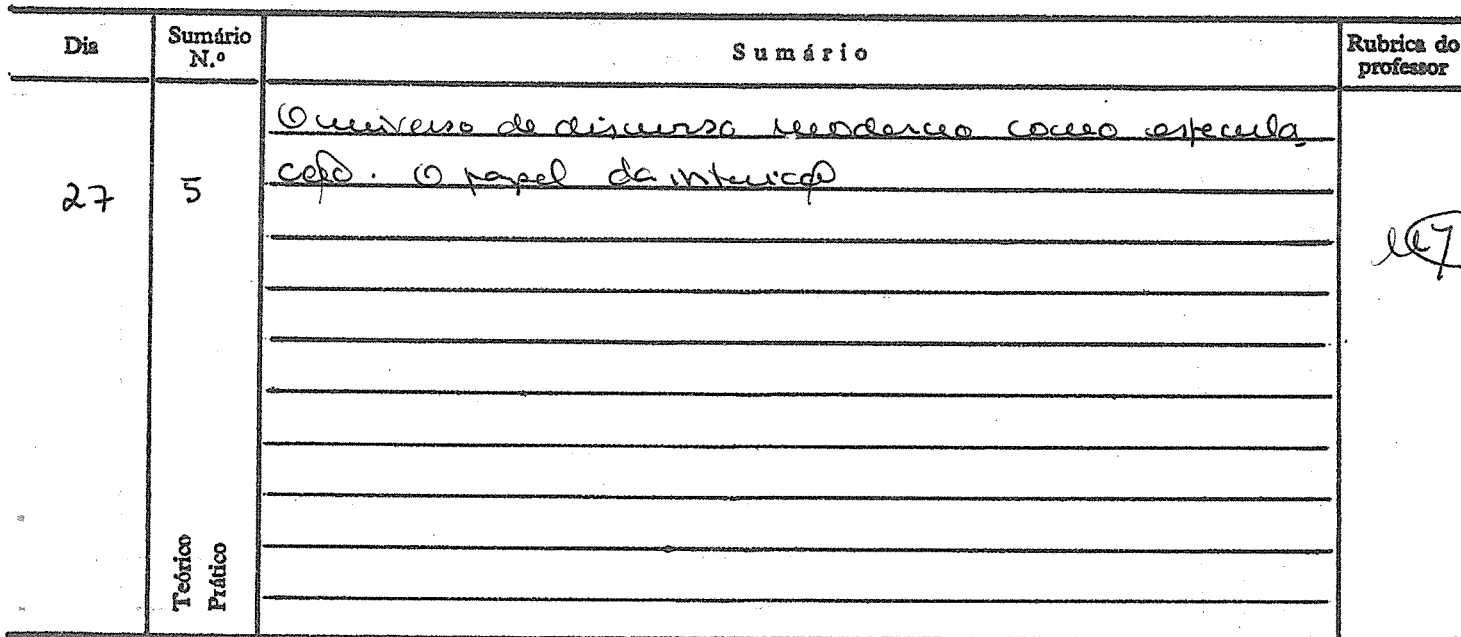 Dia
Sumário N.º
Sumário
Rubrica do professor
O universo de discurso moderno como especula
ção. O papel da intuição
27
5
Teórico
Prático